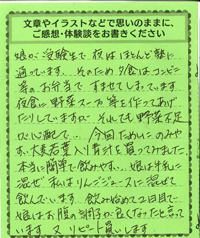 文章やイラストなどで思いのままに、
ご感想・体験談をお書きください
娘が受験生で夜はほとんど塾に
通っています。そのため夕食はコンビニ
等のお弁当ですませてしまっています。
夜食に野菜スープ等を作ってあげ
たりしていますが、それでも野菜不足
が心配で… 今回ためしにのみや
すい大麦若葉入り青汁を買ってみました。
本当に簡単で飲みやすい。娘は牛乳に
混ぜ、私はりんごジュースに混ぜて
飲んでいます。飲み始めて2日目で
娘はお腹の調子が良くなったと言って
います。又リピート買いします。